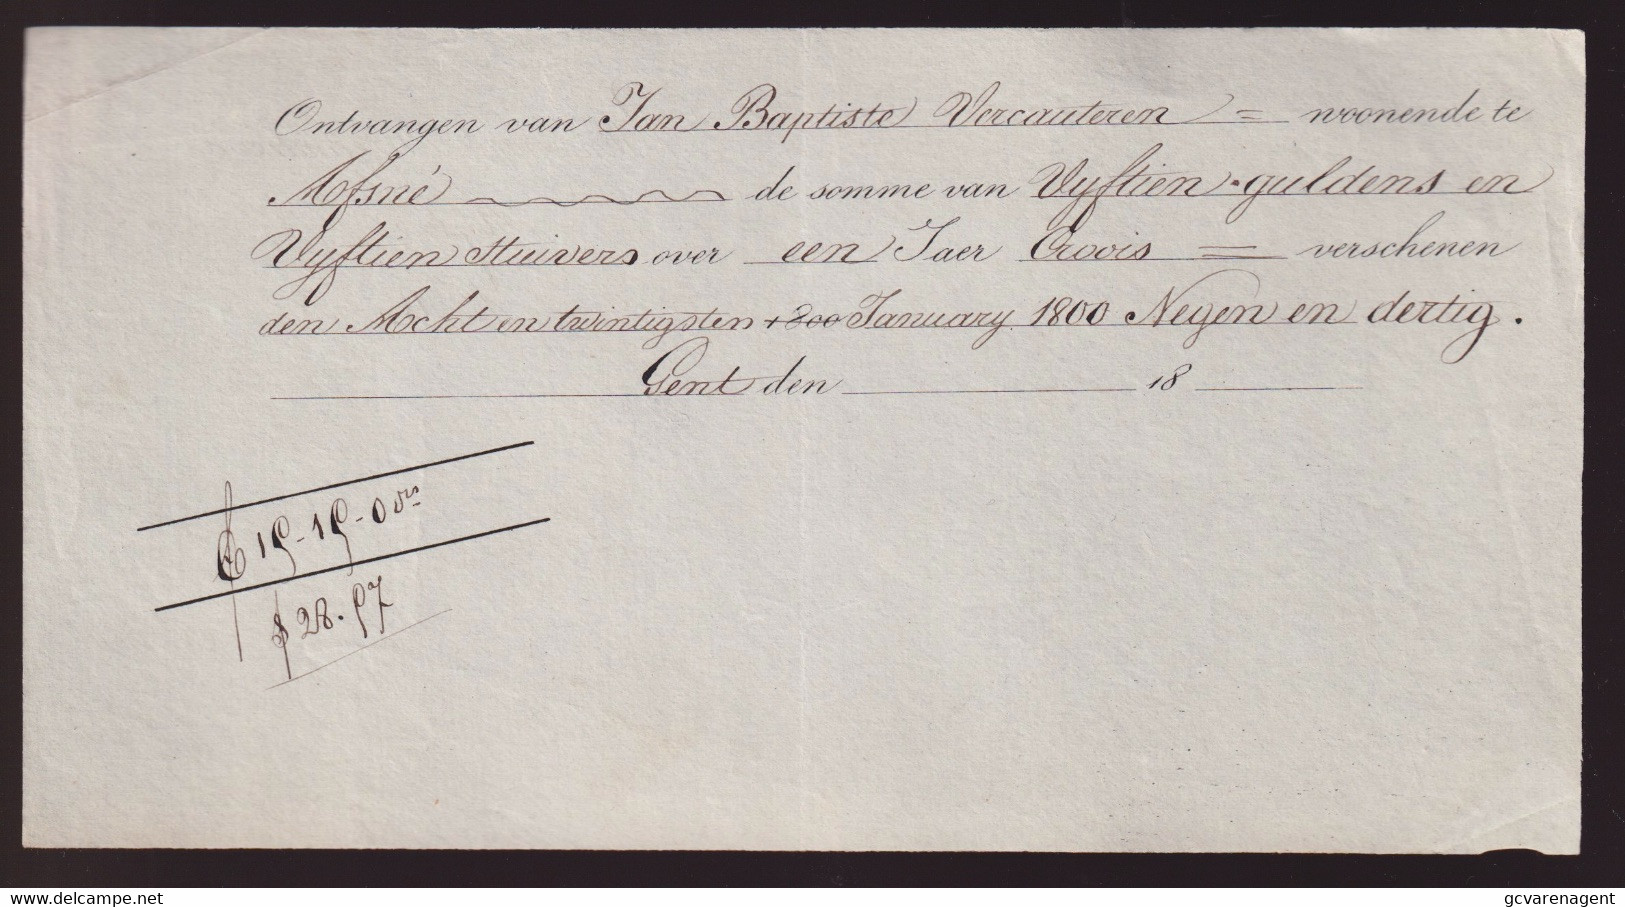 Ontvangen van Jan Baptiste Vercauteren = woonende te
Afsné de somme van Vyftien guldens en
Vyftien Stuivers over een Jaer Croois = verschenen
den Acht en twintigsten 1800 January 1800 Negen en dertig.
Gent den 18
15-15-0
28.57
gcvarenagent